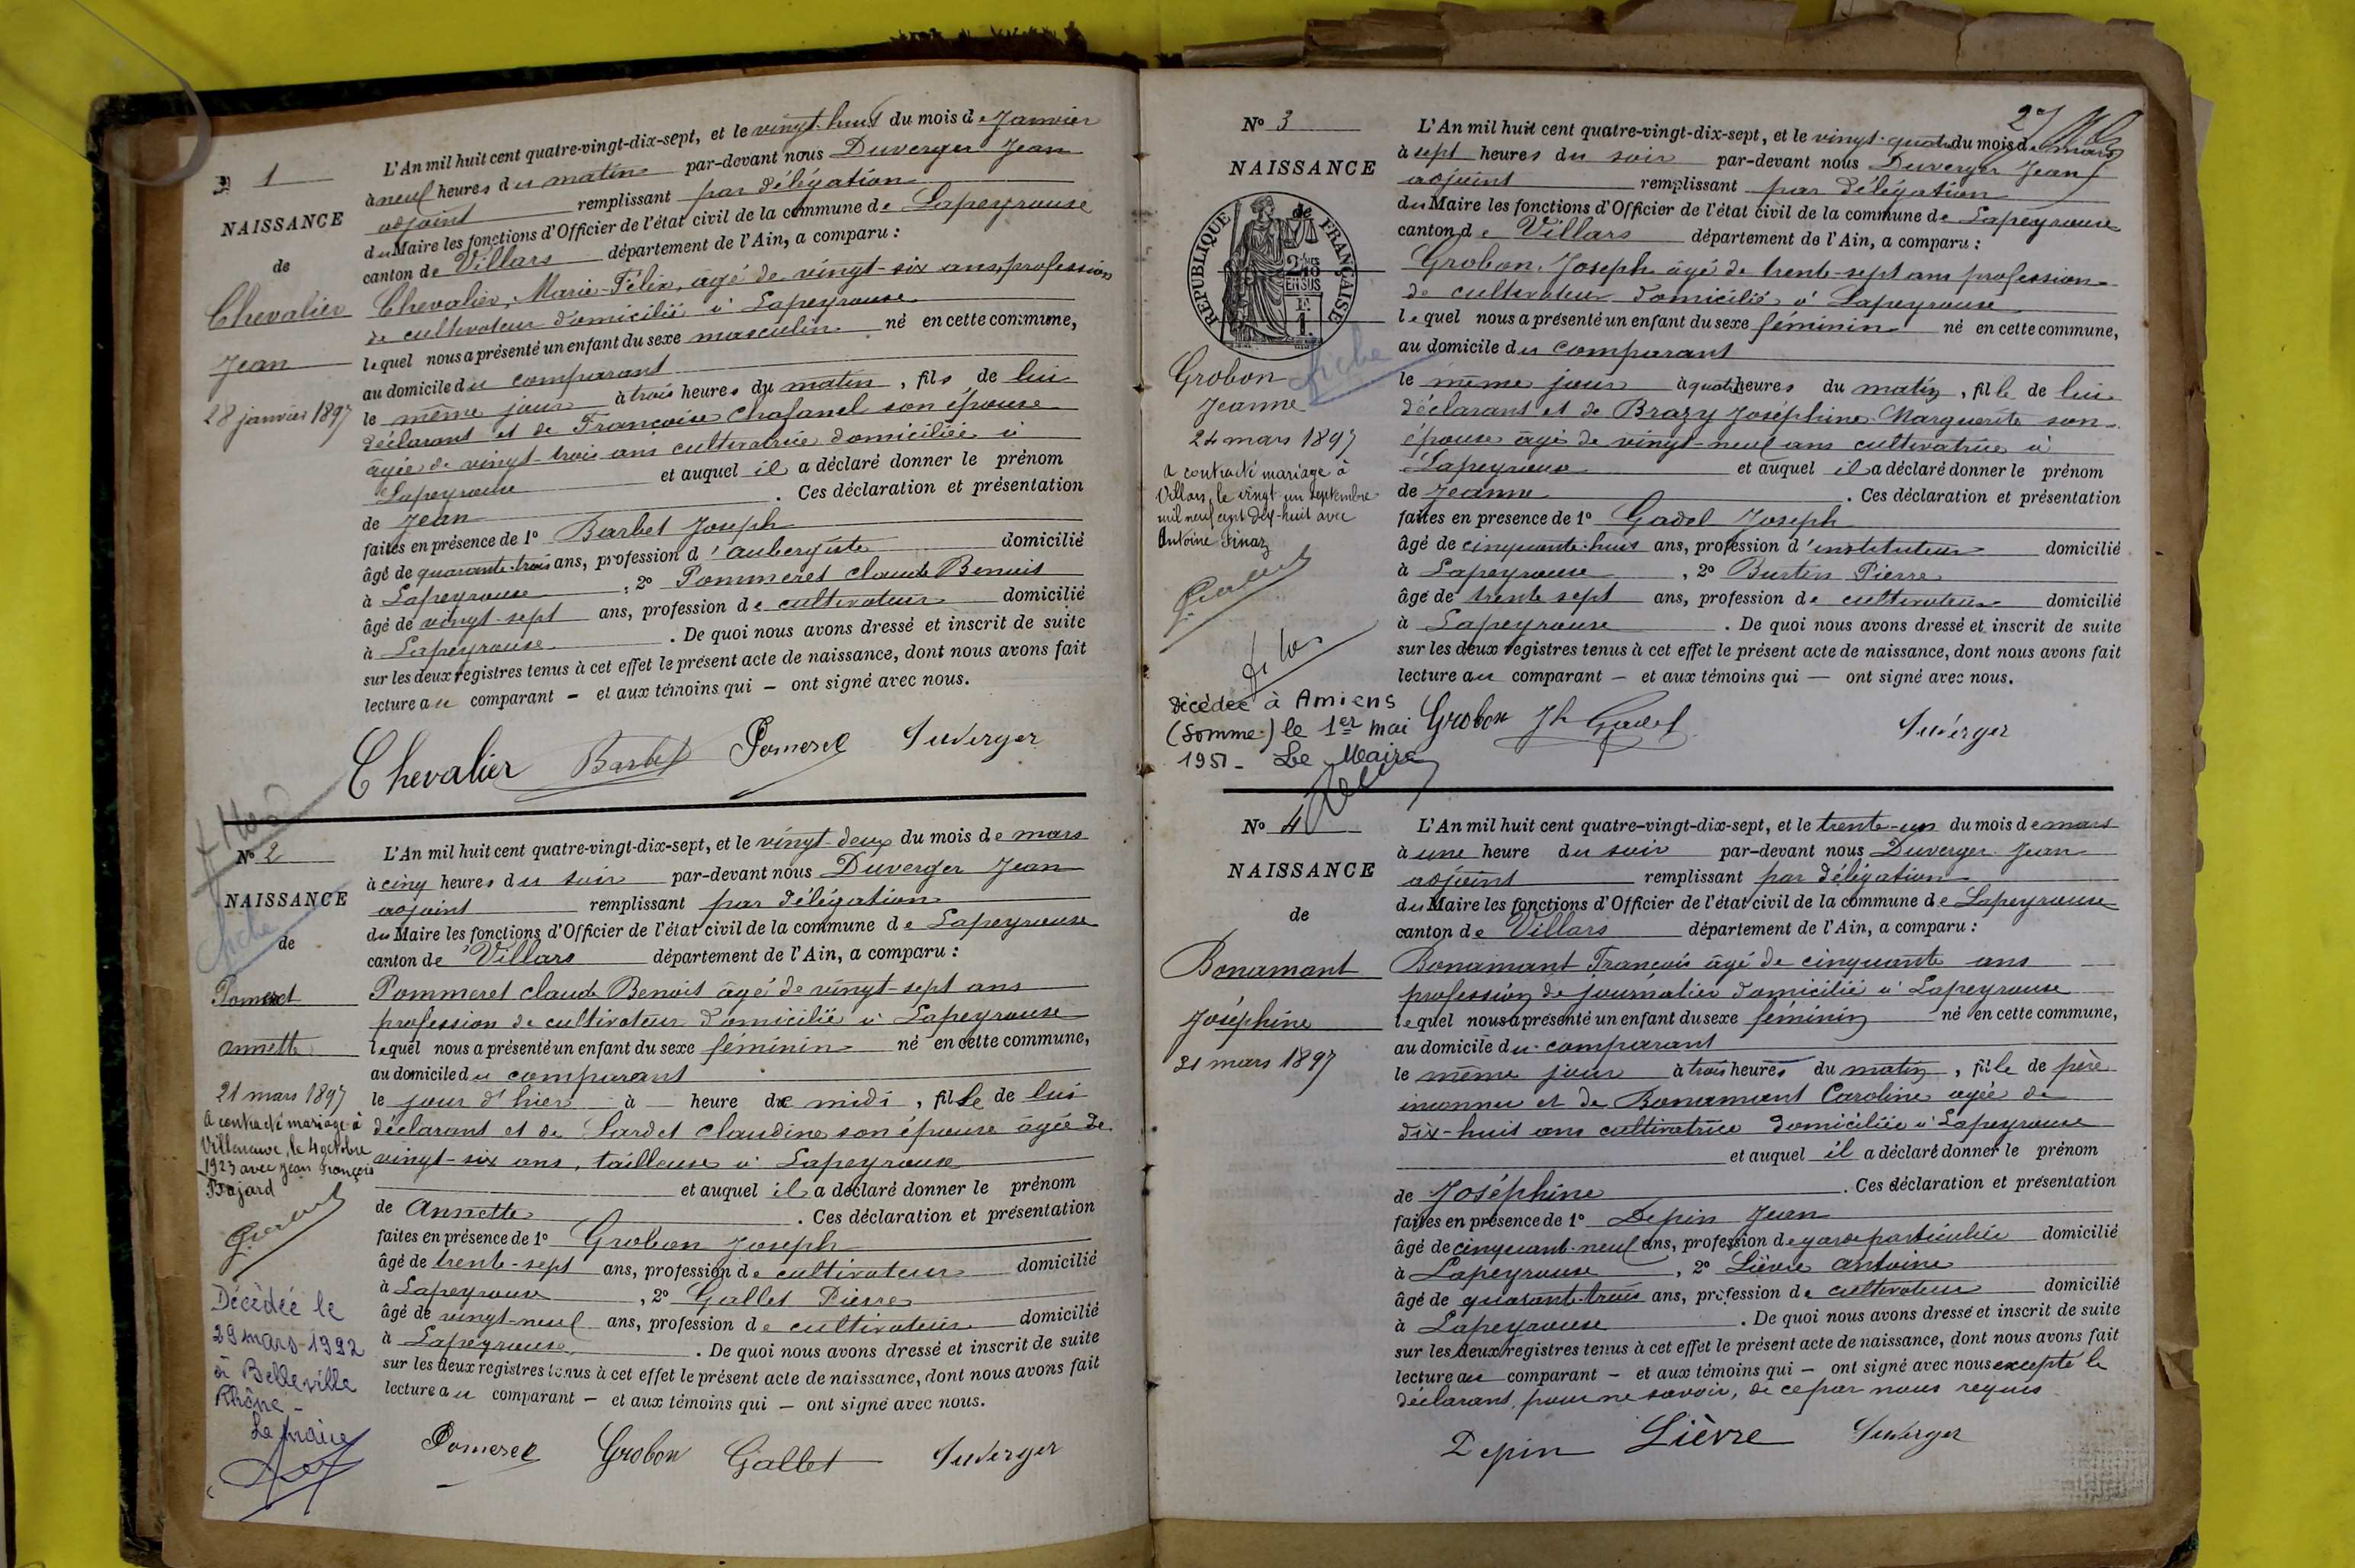 1
NAISSANCE
de
Chevalier
Jean
28 janvier 1897
L'An mil huit cent quatre-vingt-dix-sept, et le vingt-huit du mois de Janvier
à neuf heures du matin par-devant nous Duverger Jean
adjoint remplissant par délégation
du Maire les fonctions d'Officier de l'état civil de la commune de Lapeyrouse
canton de Villars département de l'Ain, a comparu :
Chevalier, Marie-Félix, âgé de vingt-six ans, profession
de cultivateur domicilié à Lapeyrouse
lequel nous a présenté un enfant du sexe masculin né en cette commune,
au domicile du comparant
le même jour à trois heures du matin, fils de lui
déclarant et de Françoise Chafanel son épouse
âgée de vingt-trois ans cultivatrice domiciliée à
Lapeyrouse et auquel il a déclaré donner le prénom
de Jean. Ces déclaration et présentation
faites en présence de 1° Barbet Joseph
âgé de quarante-trois ans, profession d'aubergiste domicilié
à Lapeyrouse, 2° Pommeret Claude Benoit
âgé de vingt-sept ans, profession de cultivateur domicilié
à Lapeyrouse. De quoi nous avons dressé et inscrit de suite
sur les deux registres tenus à cet effet le présent acte de naissance, dont nous avons fait
lecture au comparant - et aux témoins qui - ont signé avec nous.
Chevalier Barbet Pomerel Duverger
N° 2
NAISSANCE
fiche
de
Pomeret
annette
21 mars 1897
a contracté mariage à
Villeneuve, le 4 octobre
1923 avec Jean François
Bajard
Décédée le
29 mars 1992
à Belleville
Rhône -
Le maire
L'An mil huit cent quatre-vingt-dix-sept, et le vingt-deux du mois de mars
à cinq heures du soir par-devant nous Duverger Jean
adjoint remplissant par délégation
du Maire les fonctions d'Officier de l'état civil de la commune de Lapeyrouse
canton de Villars département de l'Ain, a comparu :
Pommeret Claude Benoit âgé de vingt-sept ans
profession de cultivateur domicilié à Lapeyrouse
lequel nous a présenté un enfant du sexe féminin né en cette commune,
au domicile du comparant
le jour d'hier à - heure de midi, fille de lui
déclarant et de Sardet Claudine son épouse âgée de
vingt-six ans, tailleuse à Lapeyrouse
et auquel il a déclaré donner le prénom
de Annette. Ces déclaration et présentation
faites en présence de 1° Grobon Joseph
âgé de trente-sept ans, profession de cultivateur domicilié
à Lapeyrouse, 2° Gallet Pierre
âgé de vingt-neuf ans, profession de cultivateur domicilié
à Lapeyrouse. De quoi nous avons dressé et inscrit de suite
sur les deux registres tenus à cet effet le présent acte de naissance, dont nous avons fait
lecture au comparant - et aux témoins qui - ont signé avec nous.
Pomerel Grobon Gallet Duverger
27
N° 3
NAISSANCE
de
REPUBLIQUE FRANÇAISE
2/10 EN SUS
Grobon
fiche
Jeanne
24 mars 1897
a contracté mariage à
Villars, le vingt un septembre
mil neuf cent dix-huit avec
Antoine Finaz
Décédée à Amiens
(Somme) le 1er mai
1951 - Le Maire
L'An mil huit cent quatre-vingt-dix-sept, et le vingt-quatre du mois de mars
à sept heures du soir par-devant nous Duverger Jean
adjoint remplissant par délégation
du Maire les fonctions d'Officier de l'état civil de la commune de Lapeyrouse
canton de Villars département de l'Ain, a comparu :
Grobon, Joseph âgé de trente-sept ans profession
de cultivateur domicilié à Lapeyrouse
lequel nous a présenté un enfant du sexe féminin né en cette commune,
au domicile du comparant
le même jour à quatre heures du matin, fille de lui
déclarant et de Brazy Joséphine Marguerite son
épouse âgée de vingt-neuf ans cultivatrice à
Lapeyrouse et auquel il a déclaré donner le prénom
de Jeanne. Ces déclaration et présentation
faites en présence de 1° Gadol Joseph
âgé de cinquante-huit ans, profession d'instituteur domicilié
à Lapeyrouse, 2° Burtin Pierre
âgé de trente sept ans, profession de cultivateur domicilié
à Lapeyrouse. De quoi nous avons dressé et inscrit de suite
sur les deux registres tenus à cet effet le présent acte de naissance, dont nous avons fait
lecture au comparant - et aux témoins qui - ont signé avec nous.
Grobon Jh Gadol Duverger
N° 4
NAISSANCE
de
Bonamant
Joséphine
31 mars 1897
L'An mil huit cent quatre-vingt-dix-sept, et le trente-un du mois de mars
à une heure du soir par-devant nous Duverger Jean
adjoint remplissant par délégation
du Maire les fonctions d'Officier de l'état civil de la commune de Lapeyrouse
canton de Villars département de l'Ain, a comparu :
Bonamant François âgé de cinquante ans
profession de journalier domicilié à Lapeyrouse
lequel nous a présenté un enfant du sexe féminin né en cette commune,
au domicile du comparant
le même jour à trois heures du matin, fille de père
inconnu et de Bonamant Caroline âgée de
dix-huit ans cultivatrice domiciliée à Lapeyrouse
et auquel il a déclaré donner le prénom
de Joséphine. Ces déclaration et présentation
faites en présence de 1° Depin Jean
âgé de cinquante-neuf ans, profession de garde particulier domicilié
à Lapeyrouse, 2° Lièvre antoine
âgé de quarante-trois ans, profession de cultivateur domicilié
à Lapeyrouse. De quoi nous avons dressé et inscrit de suite
sur les deux registres tenus à cet effet le présent acte de naissance, dont nous avons fait
lecture au comparant - et aux témoins qui - ont signé avec nous excepté le
déclarant, pour ne savoir, de ce par nous requis
Depin Lièvre Duverger